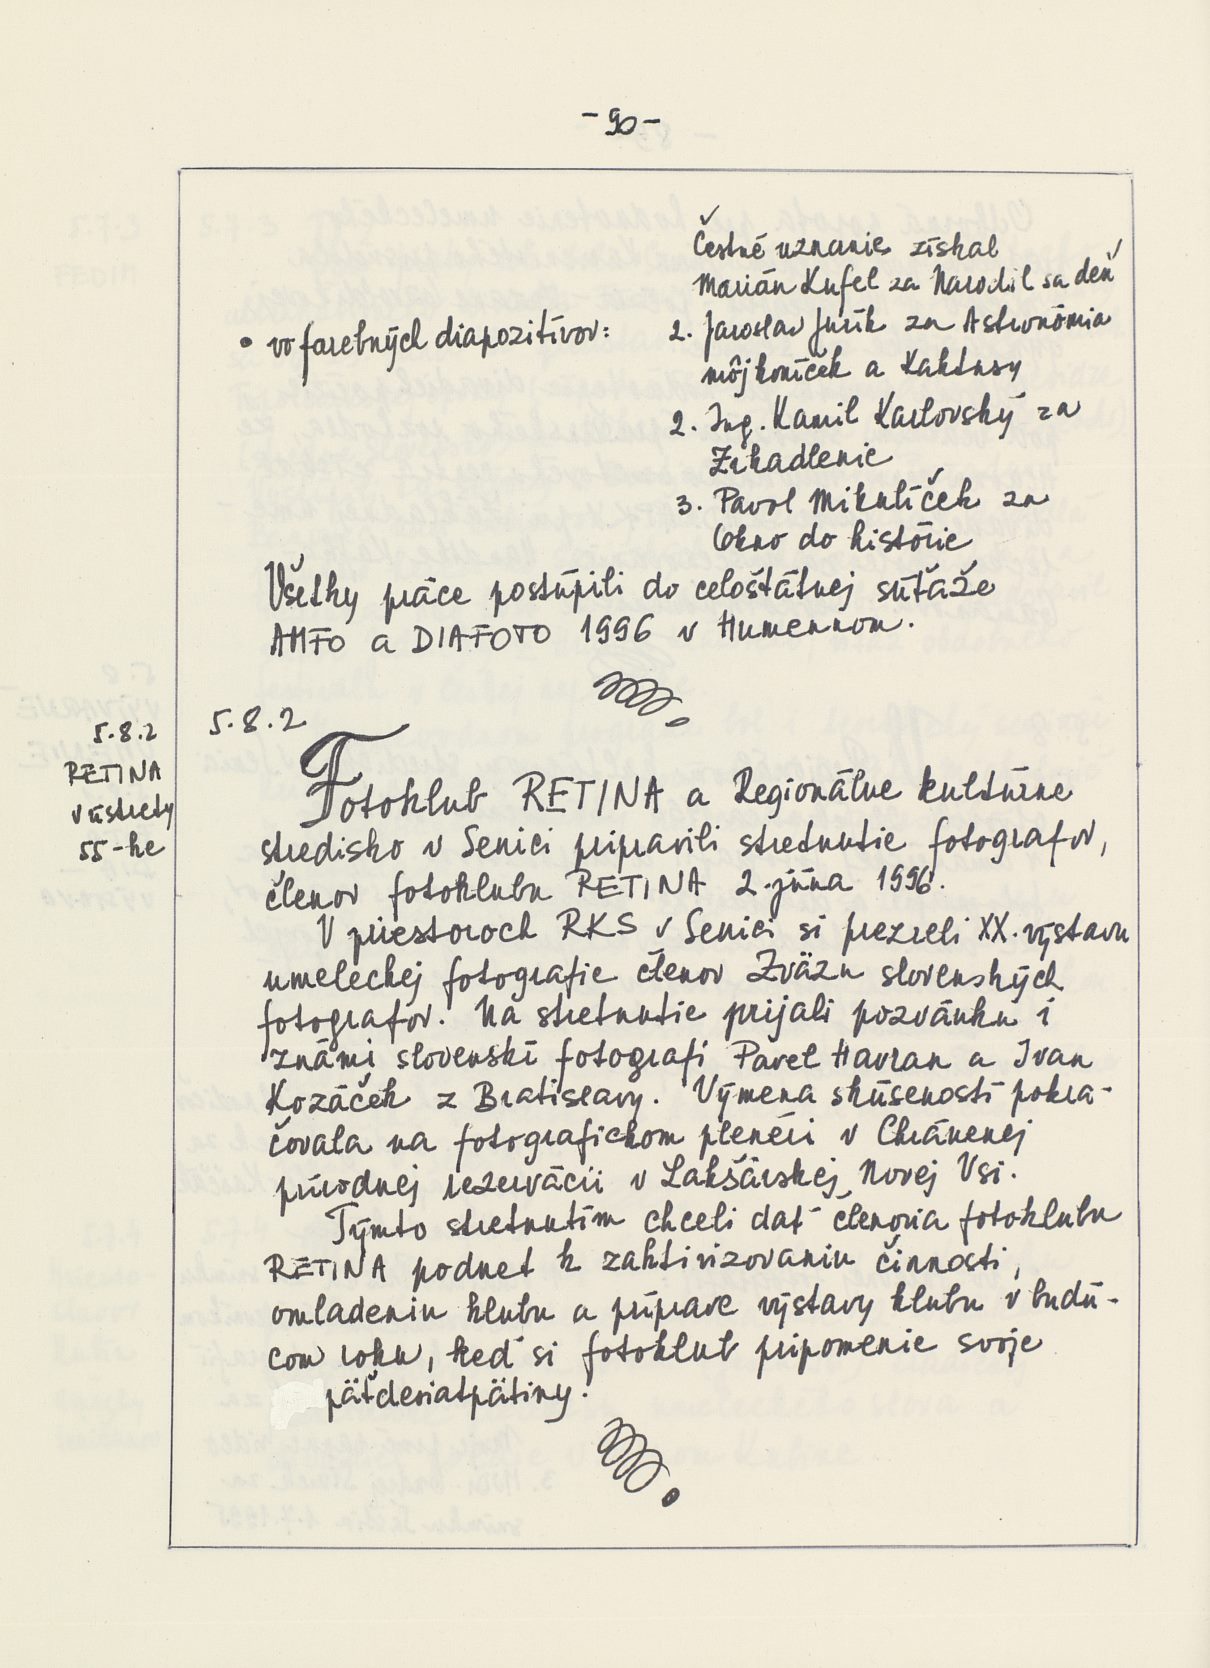 - 90 -
Čestné uznanie získal
Marián Kufel za Narodil sa deň
• vo farebných diapozitívov:
2. Jaroslav Jurík za Astronómia
môj koníček a Kaktusy
2. Ing. Kamil Karlovský za
Zrkadlenie
3. Pavol Mikulíček za
Okno do histórie
Všetky práce postúpili do celoštátnej súťaže
AMFO a DIAFOTO 1996 v Humennom.
5.8.2
RETINA
v ústrety
55-ke
5.8.2
Fotoklub RETINA a Regionálne kultúrne
stredisko v Senici pripravili stretnutie fotografov,
členov fotoklubu RETINA 2. júna 1996.
V priestoroch RKS v Senici si prezreli XX. výstavu
umeleckej fotografie členov Zväzu slovenských
fotografov. Na stretnutie prijali pozvánku i
známi slovenskí fotografi Pavel Havran a Ivan
Kozáček z Bratislavy. Výmena skúseností pokra-
čovala na fotografickom plenéri v Chránenej
prírodnej rezervácii v Lakšárskej Novej Vsi.
Týmto stretnutím chceli dať členovia fotoklubu
RETINA podnet k zaktivizovaniu činnosti,
omladeniu klubu a príprave výstavy klubu v budú-
com roku, keď si fotoklub pripomenie svoje
päťdesiatpätiny.